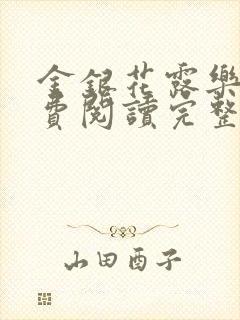 金銀花露樂
費閱讀完整
山田酉子